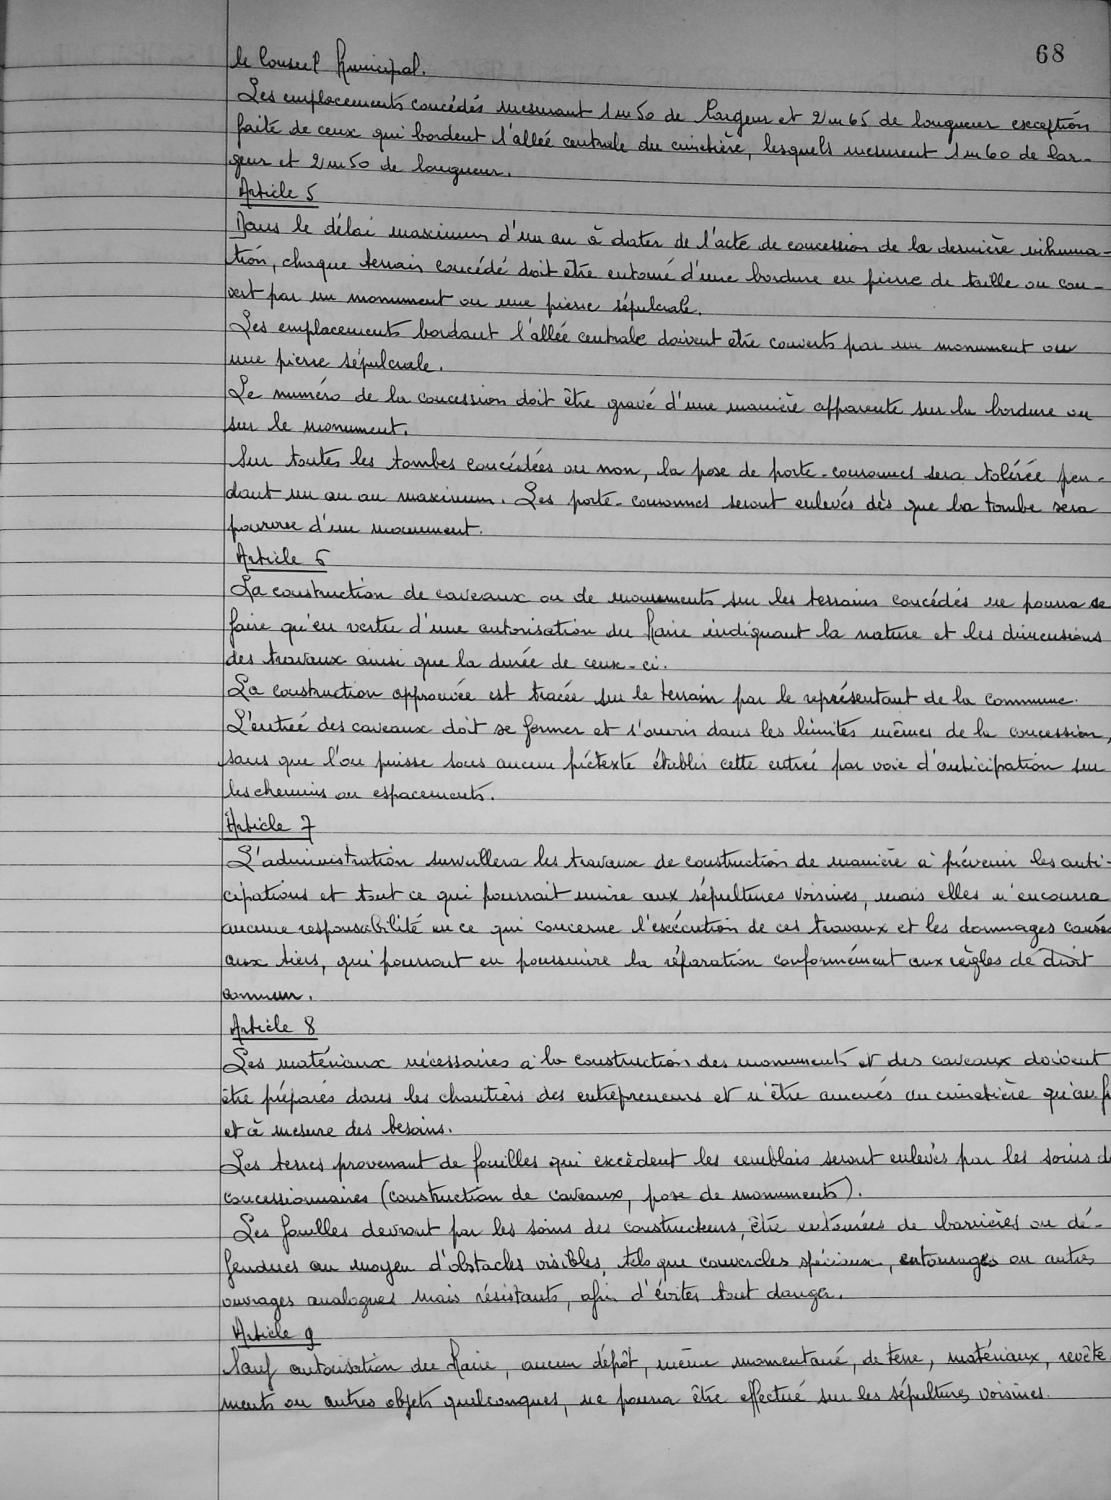 68
le Conseil Municipal.
Les emplacements concédés mesurant 1m50 de largeur et 2m65 de longueur exception
faite de ceux qui bordent l'allée centrale du cimetière, lesquels mesurent 1m60 de lar-
geur et 2m50 de longueur.
Article 5
Dans le délai maximum d'un an à dater de l'acte de concession de la dernière inhuma-
tion, chaque terrain concédé doit être entouré d'une bordure en pierre de taille ou cou-
vert par un monument ou une pierre sépulcrale.
Les emplacements bordant l'allée centrale doivent être couverts par un monument ou
une pierre sépulcrale.
Le numéro de la concession doit être gravé d'une manière apparente sur la bordure ou
sur le monument.
Sur toutes les tombes concédées ou non, la pose de porte-couronnes sera tolérée pen-
dant un an au maximum. Les porte-couronnes seront enlevés dès que la tombe sera
pourvue d'un monument.
Article 6
La construction de caveaux ou de monuments sur les terrains concédés ne pourra se
faire qu'en vertu d'une autorisation du Maire indiquant la nature et les dimensions
des travaux ainsi que la durée de ceux-ci.
La construction approuvée est tracée sur le terrain par le représentant de la commune.
L'entrée des caveaux doit se fermer et s'ouvrir dans les limites mêmes de la concession,
sans que l'on puisse sous aucun prétexte établir cette entrée par voie d'anticipation sur
les chemins ou espacements.
Article 7
L'administration surveillera les travaux de construction de manière à prévenir les anti-
cipations et tout ce qui pourrait nuire aux sépultures voisines, mais elles n'encourra
aucune responsabilité en ce qui concerne l'exécution de ces travaux et les dommages causés
aux tiers, qui pourront en poursuivre la réparation conformément aux règles de droit
commun.
Article 8
Les matériaux nécessaires à la construction des monuments et des caveaux doivent
être préparés dans les chantiers des entrepreneurs et n'être amenés au cimetière qu'au f
et à mesure des besoins.
Les terres provenant de fouilles qui excèdent les remblais seront enlevés par les soins d
concessionnaires (construction de caveaux, pose de monuments).
Les fouilles devront par les soins des constructeurs, être entourées de barrières ou dé-
fendues au moyen d'obstacles visibles, tels que couvercles spéciaux, entourages ou autres
ouvrages analogues mais résistants, afin d'éviter tout danger.
Article 9
Sauf autorisation du Maire, aucun dépôt, même momentané, de terre, matériaux, revête
ments ou autres objets quelconques, ne pourra être effectué sur les sépultures voisines.